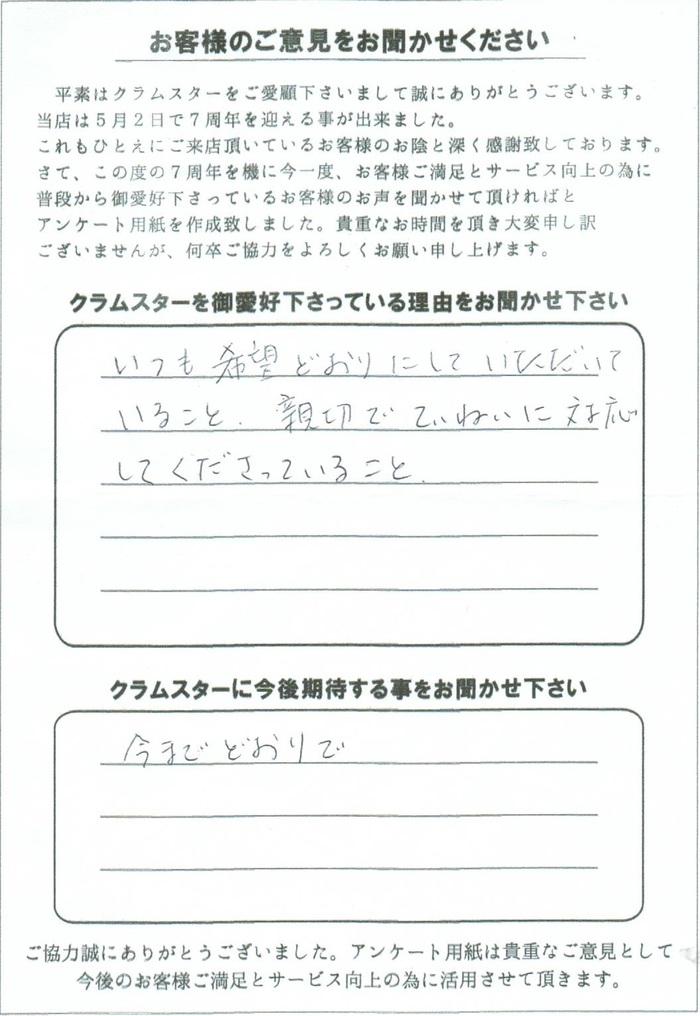 お客様のご意見をお聞かせください
平素はクラムスターをご愛顧下さいまして誠にありがとうございます。
当店は5月2日で7周年を迎える事が出来ました。
これもひとえにご来店頂いているお客様のお陰と深く感謝致しております。
さて、この度の7周年を機に今一度、お客様ご満足とサービス向上の為に
普段から御愛好下さっているお客様のお声を聞かせて頂ければと
アンケート用紙を作成致しました。貴重なお時間を頂き大変申し訳
ございませんが、何卒ご協力をよろしくお願い申し上げます。
クラムスターを御愛好下さっている理由をお聞かせ下さい
いつも希望どおりにしていただいて
いること。親切でていねいに対応
してくださっていること。
クラムスターに今後期待する事をお聞かせ下さい
今までどおりで
ご協力誠にありがとうございました。アンケート用紙は貴重なご意見として
今後のお客様ご満足とサービス向上の為に活用させて頂きます。